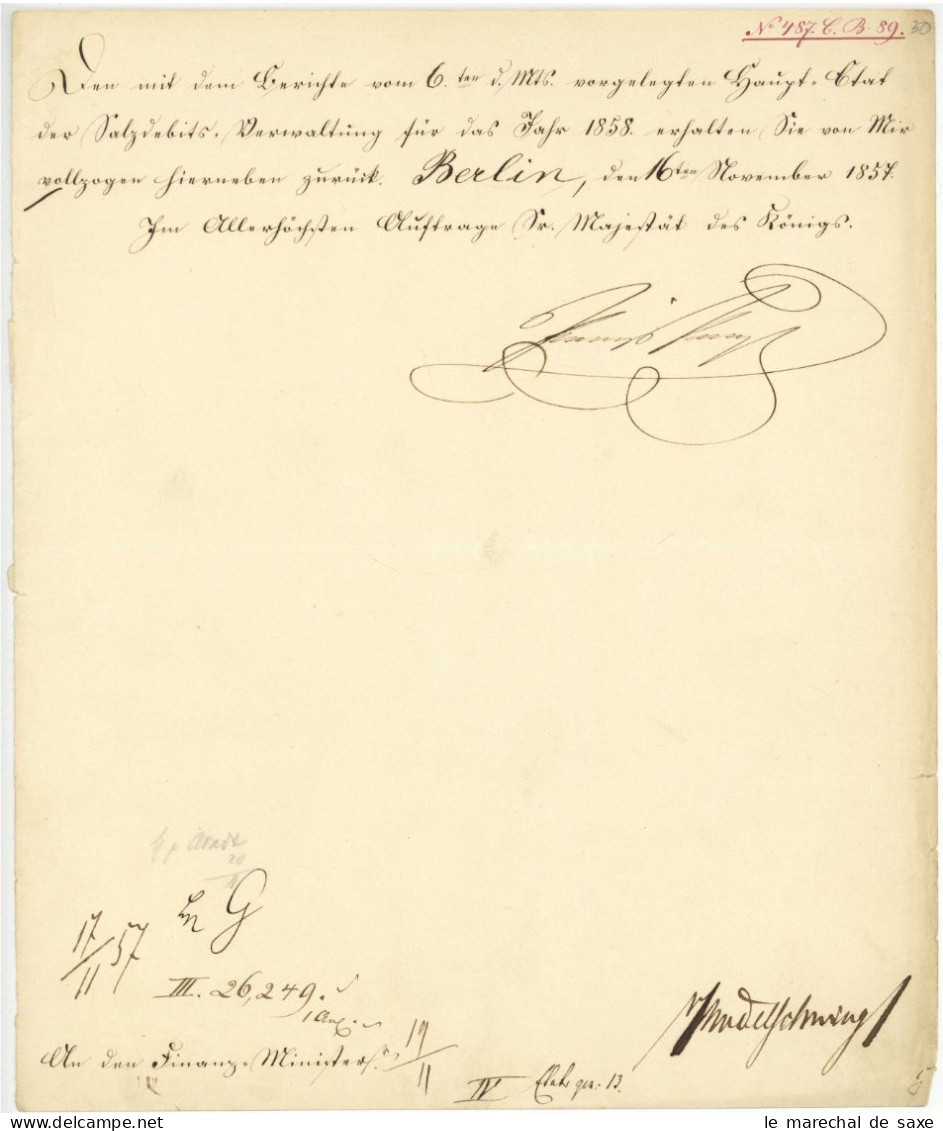 No 487. C. B. 89. 30
Den mit dem Berichte vom 6.ten d. Mts. vorgelegten Haupt-Etat
der Salzdebits-Verwaltung für das Jahr 1858. erhalten Sie von Mir
vollzogen hierneben zurück. Berlin, den 16ten November 1857.
Im Allerhöchsten Auftrage Sr. Majestät des Königs.
17/11 57
G
III. 26,249.
1 Anl.
19/11
An den Finanz-Minister.
Bodelschwingh
IV Etats gen. 13.
le marechal de saxe